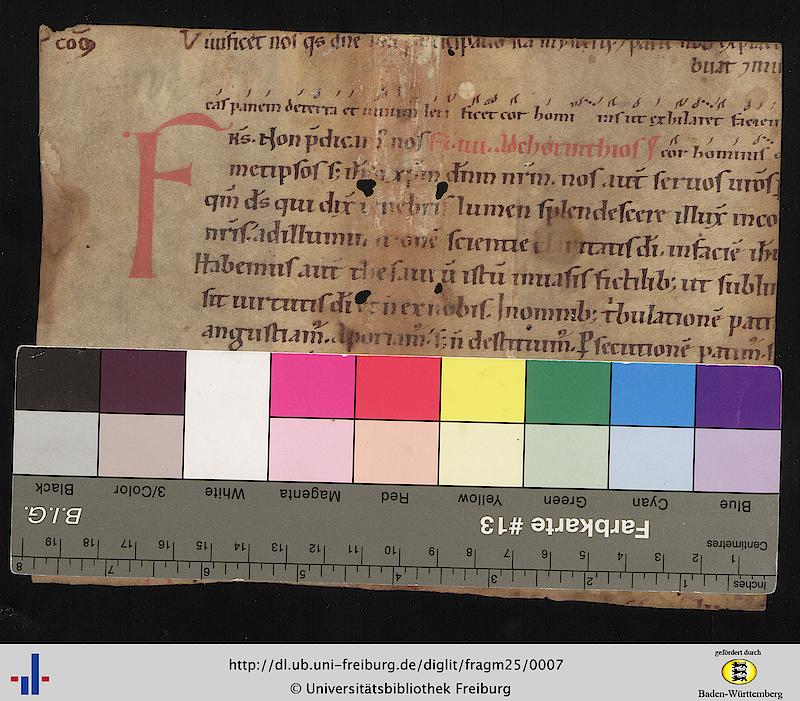 cōp Uiuificet nos q̄s dn̄e
buat ⁊ mu
cas panem de terra et uinum leti ficet cor homi nis ut exhilaret faciem
Fr̄s. Non p̄dicam nos Ad chorinthios cor hominis
metipsos s; ih̄m xp̄m dn̄m nrm̄. nos aut̄ seruos uros̄
qm̄ ds̄ qui dix̄ tenebris lumen splendescere illux̄ in co
nris̄. ad illuminationē scientie claritatis dī. in faciē ih̄u
Habemus aut̄ thesaurū istū in uasis fictilib; ut subli
sit uirtutis dī et n̄ ex nobis. In omnib; t̄bulationē pati
angustiam̄. Aporiam̄. s; n̄ destituim̄. Psecutionē patim̄. s
Black 3/Color White Magenta Red Yellow Green Cyan Blue
B.I.G. Farbkarte #13
Centimetres
19 18 17 16 15 14 13 12 11 10 9 8 7 6 5 4 3 2 1
8 7 6 5 4 3 2 1 Inches
http://dl.ub.uni-freiburg.de/diglit/fragm25/0007
© Universitätsbibliothek Freiburg
gefördert durch
Baden-Württemberg